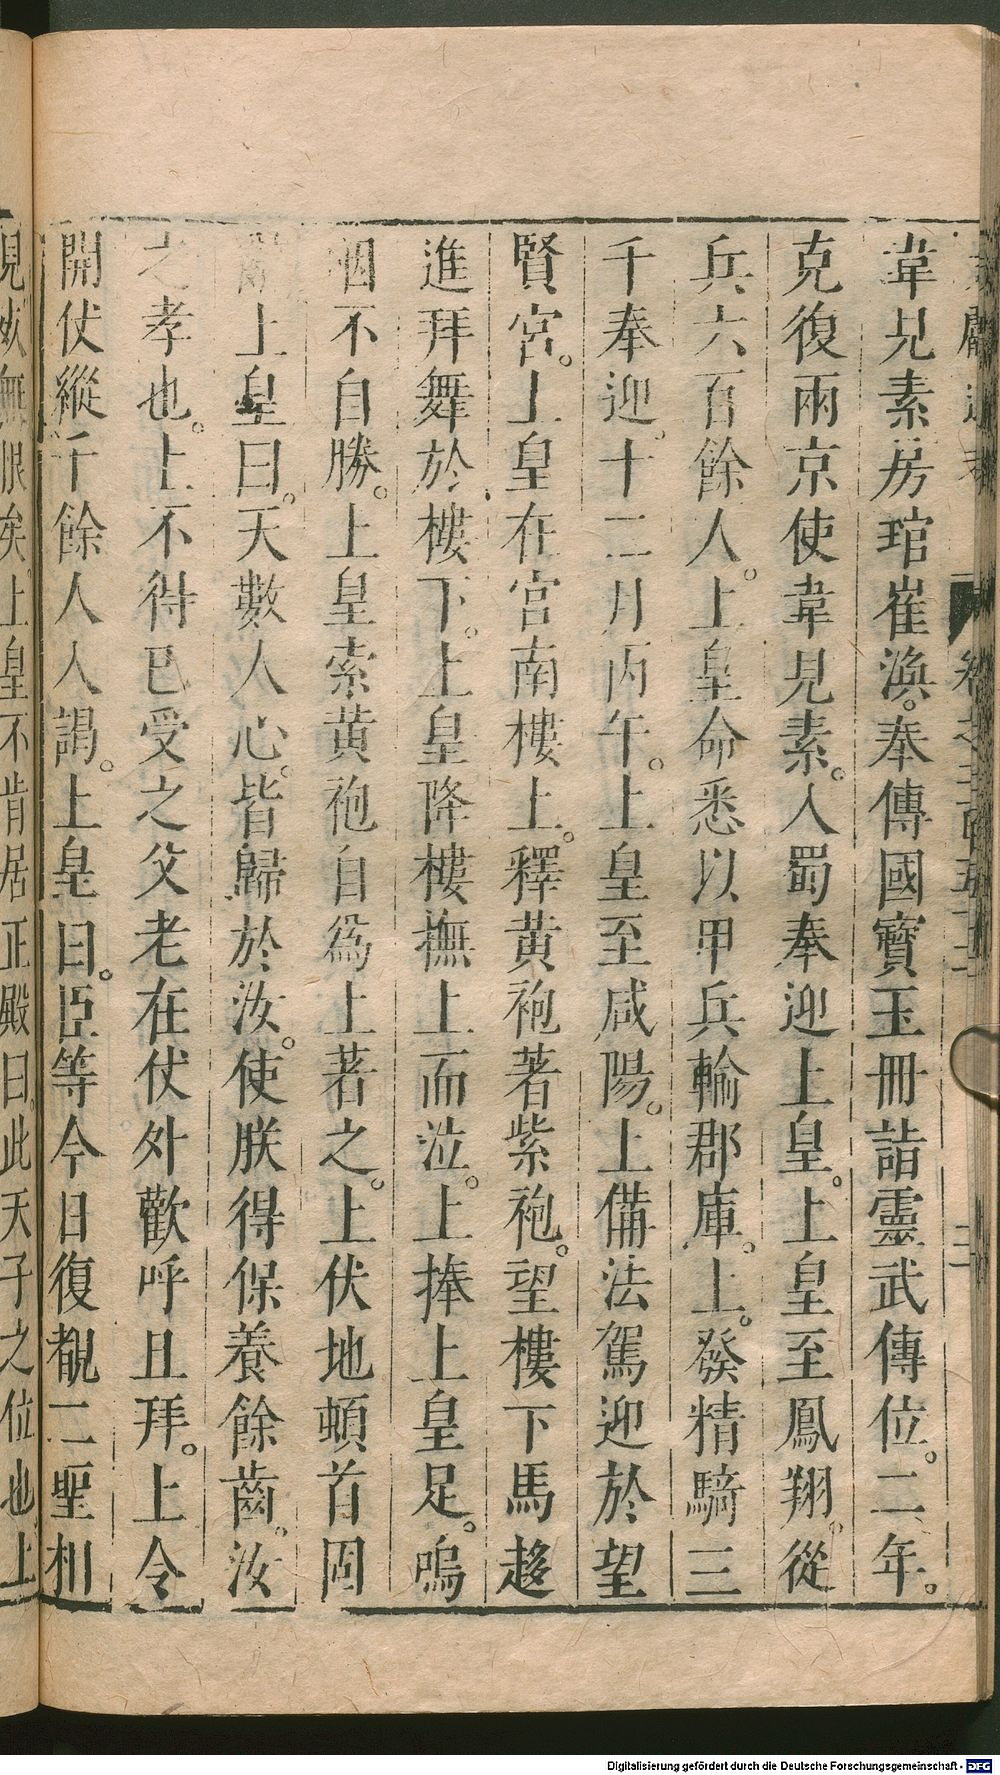 韋見素房琯崔渙。奉傳國寶玉冊詣靈武傳位。二年。
克復兩京使韋見素。入蜀奉迎上皇。上皇至鳳翔。從
兵六百餘人。上皇命悉以甲兵輸郡庫。上。發精騎三
千奉迎。十二月丙午。上皇至咸陽。上備法駕迎於望
賢宮。上皇在宮南樓上。釋黃袍著紫袍。望樓下馬趨
進拜舞於樓下。上皇降樓撫上而泣。上捧上皇足。嗚
咽不自勝。上皇索黃袍自為上著之。上伏地頓首固
上皇曰。天數人心。皆歸於汝。使朕得保養餘齒。汝
之孝也。上不得已受之父老在仗外歡呼且拜。上令
開仗縱千餘人入謁。上皇曰。臣等今日復覩二聖相
見死無恨矣。上皇不肯居正殿曰。此天子之位也。上
Digitalisierung gefördert durch die Deutsche Forschungsgemeinschaft - DFG